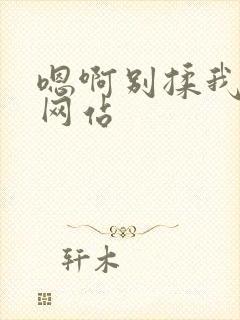 嗯啊别揉我
网佔
轩木